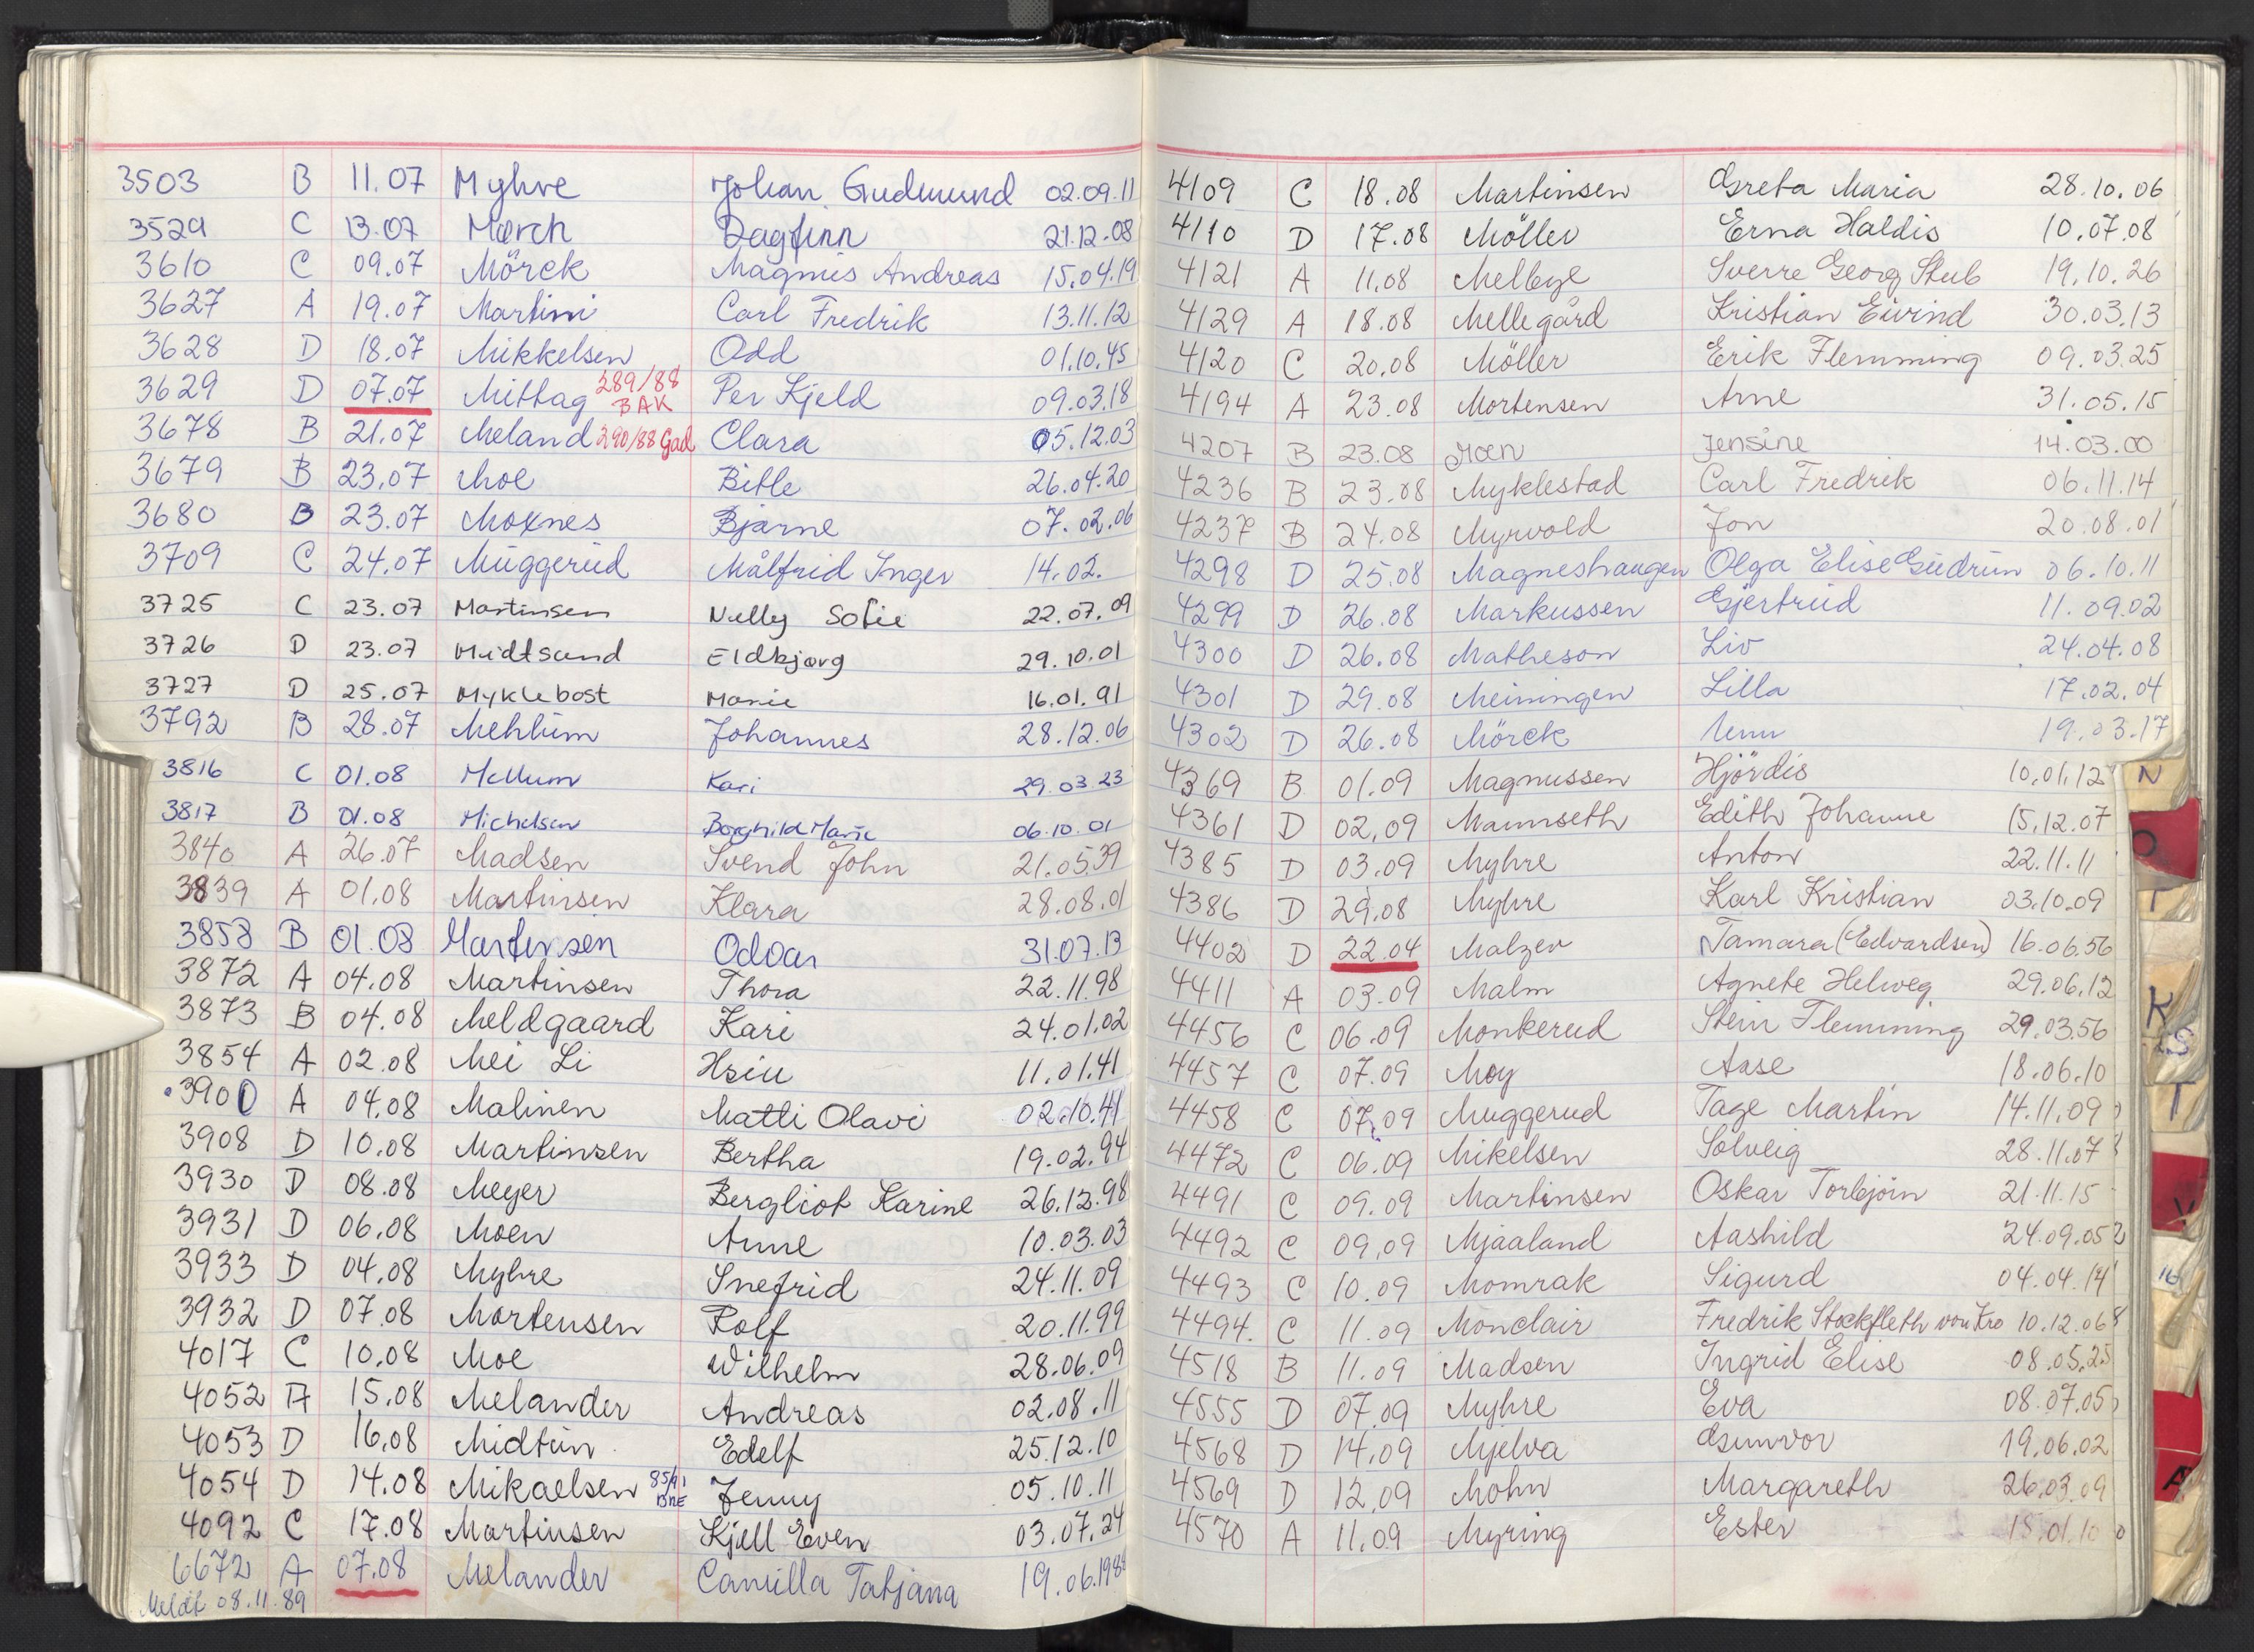 3503 B 11.07 Myhre Johan Gudmund 02.09.11
3529 C 13.07 Mørch Dagfinn 21.12.08
3610 C 09.07 Mörck Magnus Andreas 15.04.19
3627 A 19.07 Martini Carl Fredrik 13.11.12
3628 D 18.07 Mikkelsen Odd 01.10.45
3629 D 07.07 Mittag 289/88 BAK Per Kjeld 09.03.18
3678 B 21.07 Meland 290/88 Gad Clara 05.12.03
3679 B 23.07 Moe Bitle 26.04.20
3680 B 23.07 Moxnes Bjarne 07.02.06
3709 C 24.07 Muggerud Målfrid Inger 14.02.
3725 C 23.07 Martinsen Nelly Sofie 22.07.09
3726 D 23.07 Midtsund Eldbjørg 29.10.01
3727 D 25.07 Myklebost Marie 16.01.91
3792 B 28.07 Mehlum Johannes 28.12.06
3816 C 01.08 Mellum Kari 29.03.23
3817 B 01.08 Michelsen Borghild Marie 06.10.01
3840 A 26.07 Madsen Svend John 21.05.39
3839 A 01.08 Martinsen Klara 28.08.01
3858 B 01.08 Martinsen Oddar 31.07.13
3872 A 04.08 Martinsen Thora 22.11.98
3873 B 04.08 Meldgaard Kari 24.01.02
3854 A 02.08 Mei Li Hsiu 11.01.41
3900 A 04.08 Malinen Matti Olavi 02.10.41
3908 D 10.08 Martinsen Bertha 19.02.94
3930 D 08.08 Meyer Bergliot Karine 26.12.98
3931 D 06.08 Moen Anne 10.03.03
3933 D 04.08 Myhre Snefrid 24.11.09
3932 D 07.08 Mortensen Rolf 20.11.99
4017 C 10.08 Moe Wilhelm 28.06.09
4052 A 15.08 Melander Andreas 02.08.11
4053 D 16.08 Midtun Edelf 25.12.10
4054 D 14.08 Mikaelsen BRE Jenny 05.10.11
4092 C 17.08 Martinsen Kjell Even 03.07.24
6672 A 07.08 Melander Camilla Tatjana 19.06.1988
Meldt 08.11.89
4109 C 18.08 Martinsen Greta Maria 28.10.06
4110 D 17.08 Möller Erna Haldis 10.07.08
4121 A 11.08 Melbye Sverre Georg Stub 19.10.26
4129 A 18.08 Mellegård Kristian Eivind 30.03.13
4120 C 20.08 Möller Erik Flemming 09.03.25
4194 A 23.08 Mortensen Arne 31.05.15
4207 B 23.08 Moen Jensine 14.03.00
4236 B 23.08 Myklestad Carl Fredrik 06.11.14
4237 B 24.08 Myrvold Jon 20.08.01
4298 D 25.08 Magneshaugen Olga Elise Gudrun 06.10.11
4299 D 26.08 Markussen Gjertrud 11.09.02
4300 D 26.08 Matheson Liv 24.04.08
4301 D 29.08 Meiningen Lilla 17.02.04
4302 D 26.08 Mörck Unni 19.03.17
4369 B 01.09 Magnussen Hjördis 10.01.12
4361 D 02.09 Mannseth Edith Johanne 15.12.07
4385 D 03.09 Myhre Anton 22.11.11
4386 D 29.08 Myhre Karl Kristian 03.10.09
4402 D 22.04 Malzer Tamara (Edvardsen) 16.06.56
4411 A 03.09 Malm Agnete Helweg 29.06.12
4456 C 06.09 Monkerud Stein Flemming 29.03.56
4457 C 07.09 Moy Aase 18.06.10
4458 C 07.09 Muggerud Tage Martin 14.11.09
4472 C 06.09 Mikelsen Solveig 28.11.07
4491 C 09.09 Martinsen Oskar Torbjörn 21.11.15
4492 C 09.09 Mjaaland Aashild 24.09.05
4493 C 10.09 Momrak Sigurd 04.04.14
4494. C 11.09 Monclair Fredrik Stockfleth von Kro 10.12.06
4518 B 11.09 Madsen Ingrid Elise 08.05.25
4555 D 07.09 Myhre Eva 08.07.05
4568 D 14.09 Mjelva Gunvor 19.06.02
4569 D 12.09 Mohn Margareth 26.03.09
4570 A 11.09 Myring Ester 15.01.10
N
O
K
S
T
V
A